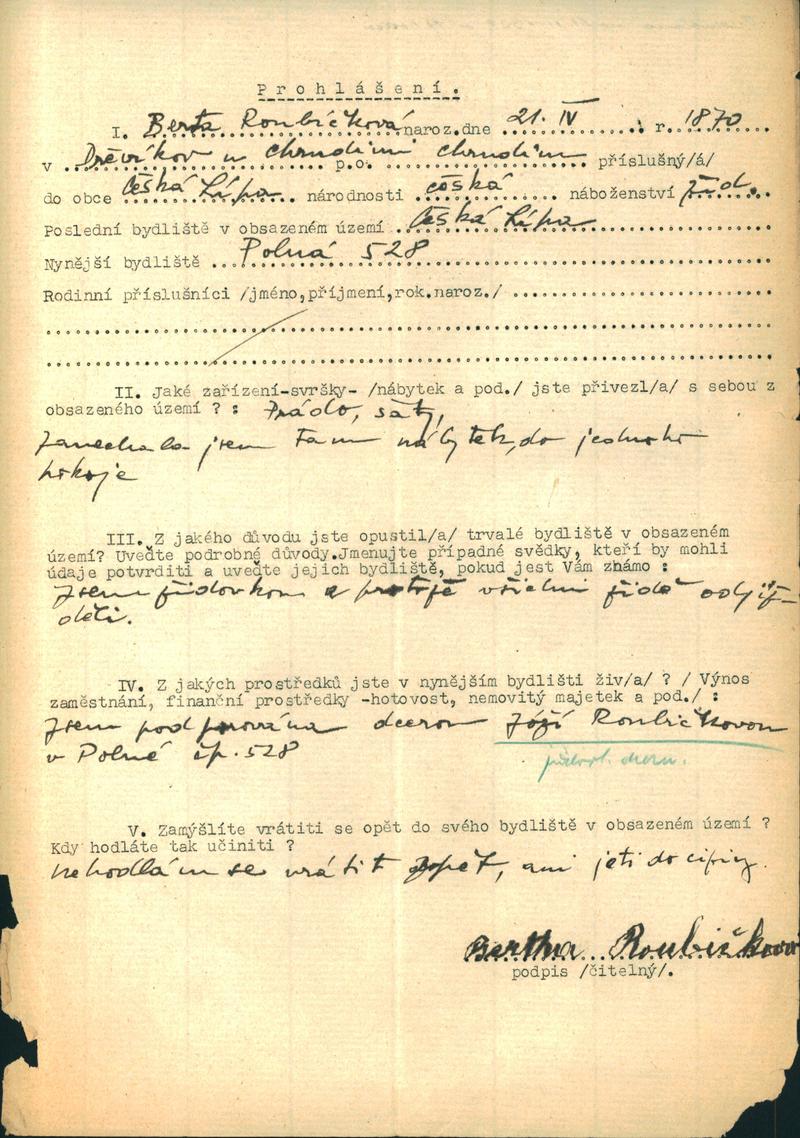 Prohlášení.
I. Berta Roubíčková naroz.dne 21. IV r. 1870
v Dřevíkov u Chrudimi p.o. Chrudim příslušný/á/
do obce Česká Lípa národnosti česká náboženství žid.
Poslední bydliště v obsazeném území Česká Lípa
Nynější bydliště Polná 528
Rodinní příslušníci /jméno,příjmení,rok.naroz./
II. Jaké zařízení-svršky- /nábytek a pod./ jste přivezl/a/ s sebou z
obsazeného území ? : Prádo, šaty,
zanechala jsem tam nábytek, do jednoho
pokoje
III. Z jakého důvodu jste opustil/a/ trvalé bydliště v obsazeném
území? Uveďte podrobné důvody.Jmenujte případné svědky, kteří by mohli
údaje potvrditi a uveďte jejich bydliště, pokud jest Vám známo :
Jsem židovkou a všichni židé odjíž-
děli.
IV. Z jakých prostředků jste v nynějším bydlišti živ/a/ ? / Výnos
zaměstnání, finanční prostředky -hotovost, nemovitý majetek a pod./ :
Jsem podporována dcerou Jóží Roubíčkovou
v Polné čp. 528
V. Zamýšlíte vrátiti se opět do svého bydliště v obsazeném území ?
Kdy hodláte tak učiniti ?
nehodlám se vrátit zpět, ani jeti do ciziny.
Bertha Roubíčková
podpis /čitelný/.